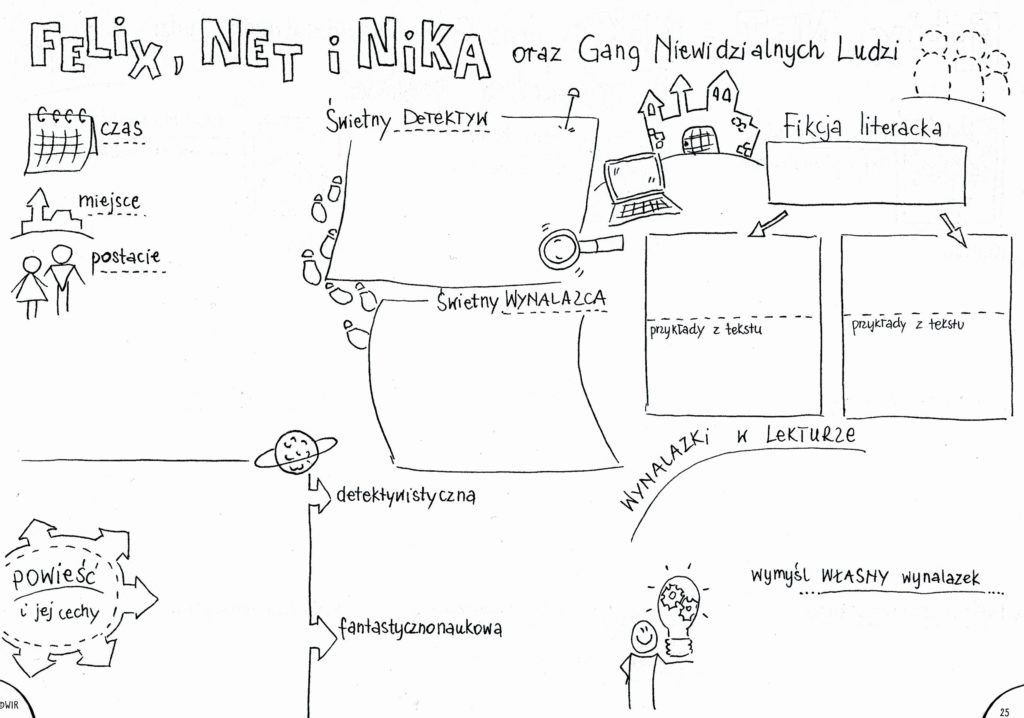 FELiX, NET i NiKA oraz Gang Niewidzialnych Ludzi
czas
miejsce
postacie
Świetny DETEKTYW
Świetny WYNALAZCA
Fikcja literacka
przykłady z tekstu
przykłady z tekstu
WYNALAZKi W LEKTURZE
wymyśl WŁASNY wynalazek
powieść
i jej cechy
detektywistyczna
fantastycznonaukowa
©WiR
25